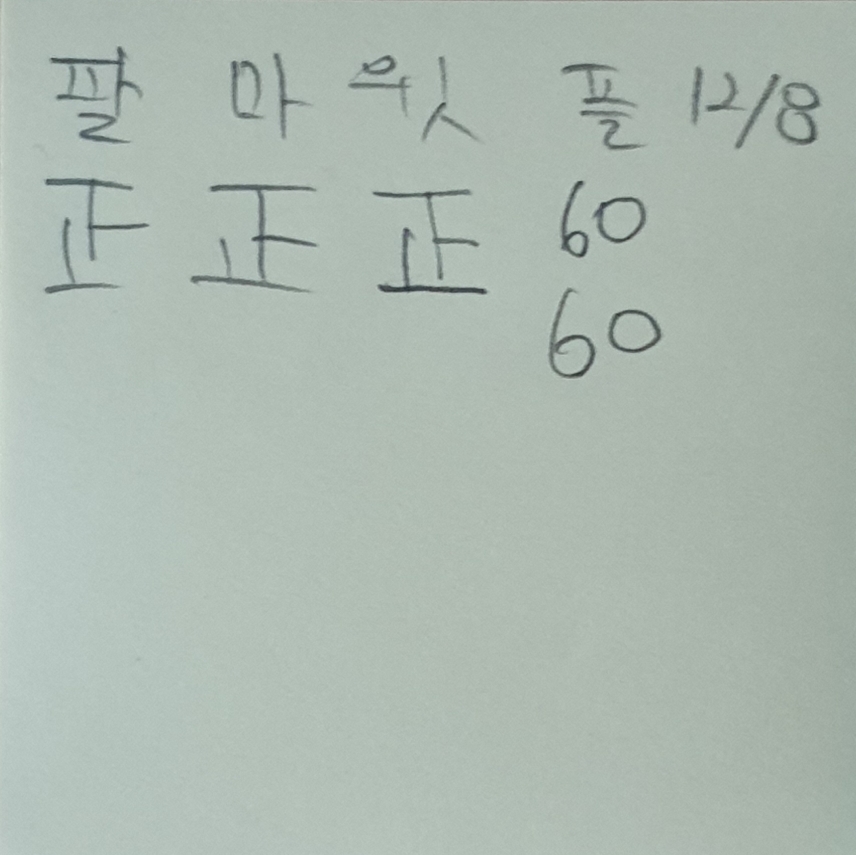 팔 마 윗 플 12/8
正 正 正 60
60